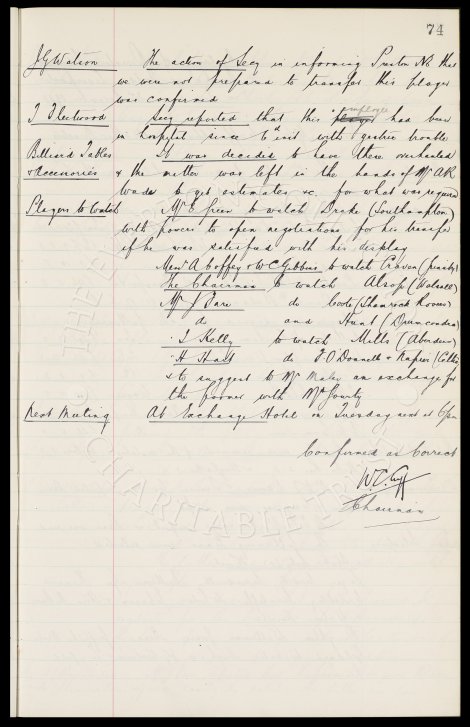 74
J G Watson The action of Secy in informing Preston N.E. that
we were not prepared to transfer this player
was confirmed
T Fleetwood Secy reported that this player employee had been
in hospital since 1st inst with gastric trouble
Billiard Tables It was decided to have these overhauled
& Accessories & the matter was left in the hands of Mr A.R.
Wade to get estimates &c. for what was required
Players to Watch Mr E Green to watch Drake (Southampton)
with powers to open negotiations for his transfer
if he was satisfied with his display
Messrs A Coffey & W C Gibbins to watch Craven (Grimsby)
The Chairman to watch Alsop (Walsall)
Mr J do (Shamrock Rovers)
do and Hunt (Drumcondra)
" J Kelly to watch Mills (Aberdeen)
" H Hart do F O'Donnell & Napier (Celtic)
& to suggest to Mr Maley an exchange for
the former with McGourty
Next Meeting At Exchange Hotel on Tuesday next at 6pm
Confirmed as Correct
W.C. Cuff
Chairman
CHARITABLE TRUST